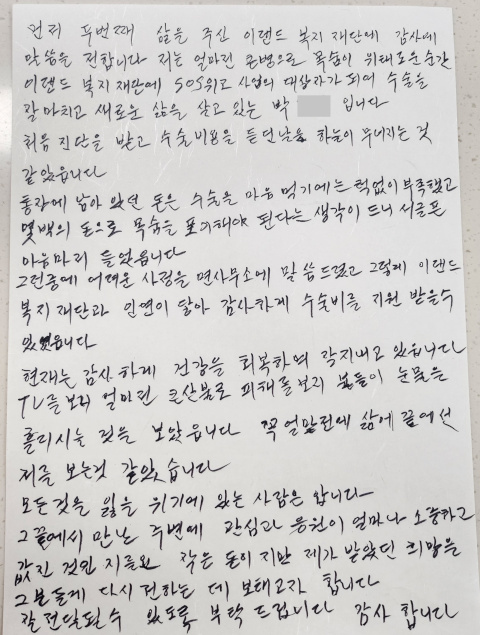 먼저 두번째 삶을 주신 이랜드 복지 재단에 감사에
말씀을 전합니다 저는 얼마전 큰병으로 목숨이 위태로운순간
이랜드 복지 재단에 SOS위고 사업의 대상자가 되어 수술을
잘 마치고 새로운 삶을 살고 있는 박 입니다
처음 진단을 받고 수술비용을 듣던날은 하늘이 무너지는 것
같았읍니다
통장에 남아 있던 돈은 수술을 마음 먹기에는 턱없이 부족했고
몇백의 돈으로 목숨을 포기해야 된다는 생각이 드니 서글픈
마음마저 들었읍니다
그런중에 어려운 사정을 면사무소에 말씀드렸고 그렇게 이랜드
복지 재단과 인연이 닿아 감사하게 수술비를 지원 받을수
있었읍니다
현재는 감사하게 건강을 회복하며 잘지내고 있읍니다
TV를보다 얼마전 큰산불로 피해를보신 분들이 눈물을
흘리시는 것을 보았읍니다 꼭 얼마전에 삶에 끝에선
저를 보는것 같았습니다
모든것을 잃을 위기에 있는 사람은 압니다
그끝에서 만난 주변에 관심과 응원이 얼마나 소중하고
값진 것인 지를요 작은 돈이지만 제가 받았던 희망을
그분들께 다시 전하는 데 보태고자 합니다
잘전달될수 있도록 부탁 드립니다 감사 합니다